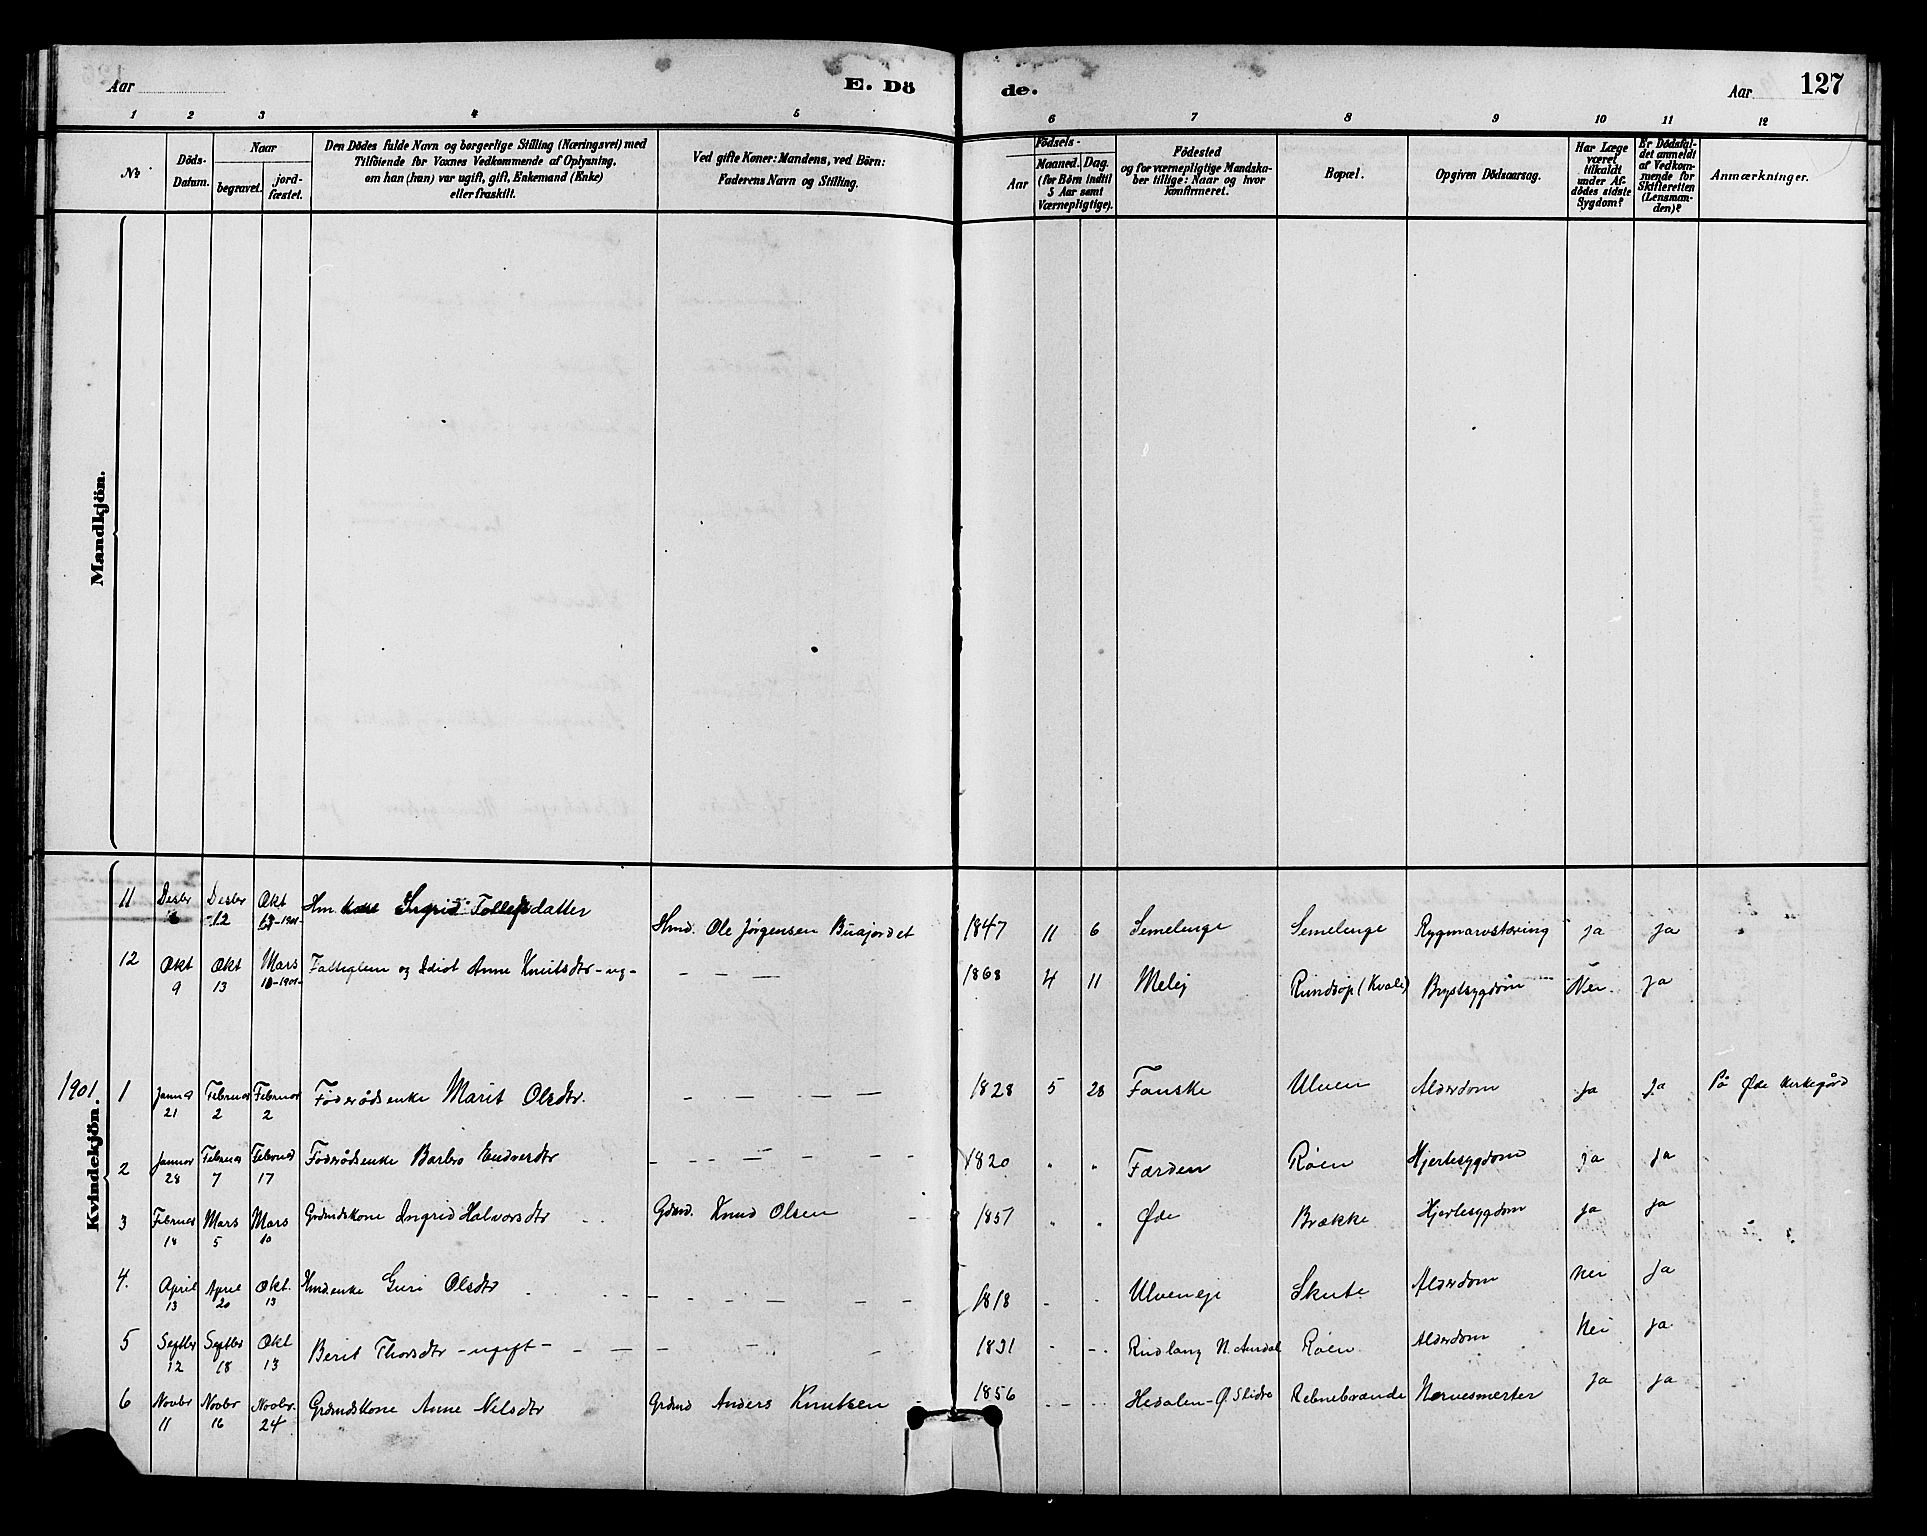 Aar
E. Dö
de.
Aar
127
1 2 3 4 5 6 7 8 9 10 11 12
No
Döds-
Datum.
Naar
begravet.
jord-
fæstet.
Den Dödes fulde Navn og borgerlige Stilling (Næringsvei) med
Tilföiende for Voxnes Vedkommende af Oplysning,
om han (hun) var ugift, gift, Enkemand (Enke)
eller fraskilt.
Ved gifte Koner: Mandens, ved Börn:
Faderens Navn og Stilling.
Födsels-
Aar
Maaned. Dag.
(for Börn indtil
5 Aar samt
Værnepligtige).
Födested
og for værnepligtige Mandska-
ber tillige: Naar og hvor
konfirmeret.
Bopæl.
Opgiven Dödsaarsag.
Har Læge
været
tilkaldt
under Af-
dödes sidste
Sygdom?
Er Dödsfal-
det anmeldt
af Vedkom-
mende for
Skifteretten
(Lensman-
den)?
Anmærkninger.
Mandkjön.
Kvindekjön.
11 Desbr Desbr 12 Okt 1901 Hm. kone Ingrid Tollefsdatter Hmd. Ole Jørgensen Buajordet 1847 11 6 Semelenge Semelenge Rygmarvstæring ja ja
12 Okt 9 Okt 13 Mars 10-1901- Fattiglem og Idiot Anne Knutsdtr - ug - 1868 4 11 Melbj Rundtop (Kvale) Brystsygdom Nei ja
1901
1 Januar 21 Februar 2 Februar 2 Føderådsenke Marit Olsdtr. 1828 5 28 Fauske Ulven Alderdom ja ja På Øde kirkegård
2 Januar 28 Februar 7 Februar 17 Føderådsenke Barbro Endresdtr 1820 " " Færden Røen Hjertesygdom ja ja
3 Februar 18 Mars 5 Mars 10 Grdmdskone Ingrid Halvorsdtr Gdmd. Knud Olsen 1857 " " Øde Brække Hjertesygdom ja ja
4. April 13 April 20 Okt. 13 Hmd.enke Guri Olsdtr 1818 Ulveneje Skute Alderdom Nei ja
5 Septbr 12 Septbr 18 Okt 13 Berit Thorsdtr - ugift - 1831 Rudlang N. Aurdal Røen Alderdom Nei ja
6 Novbr 11 Novbr 16 Novbr. 24 Grdmdskone Anne Nilsdtr Grdmd Anders Knutsen 1856 Hedalen - Ø. Slidre Rebnebrænde Nervesmerter ja ja